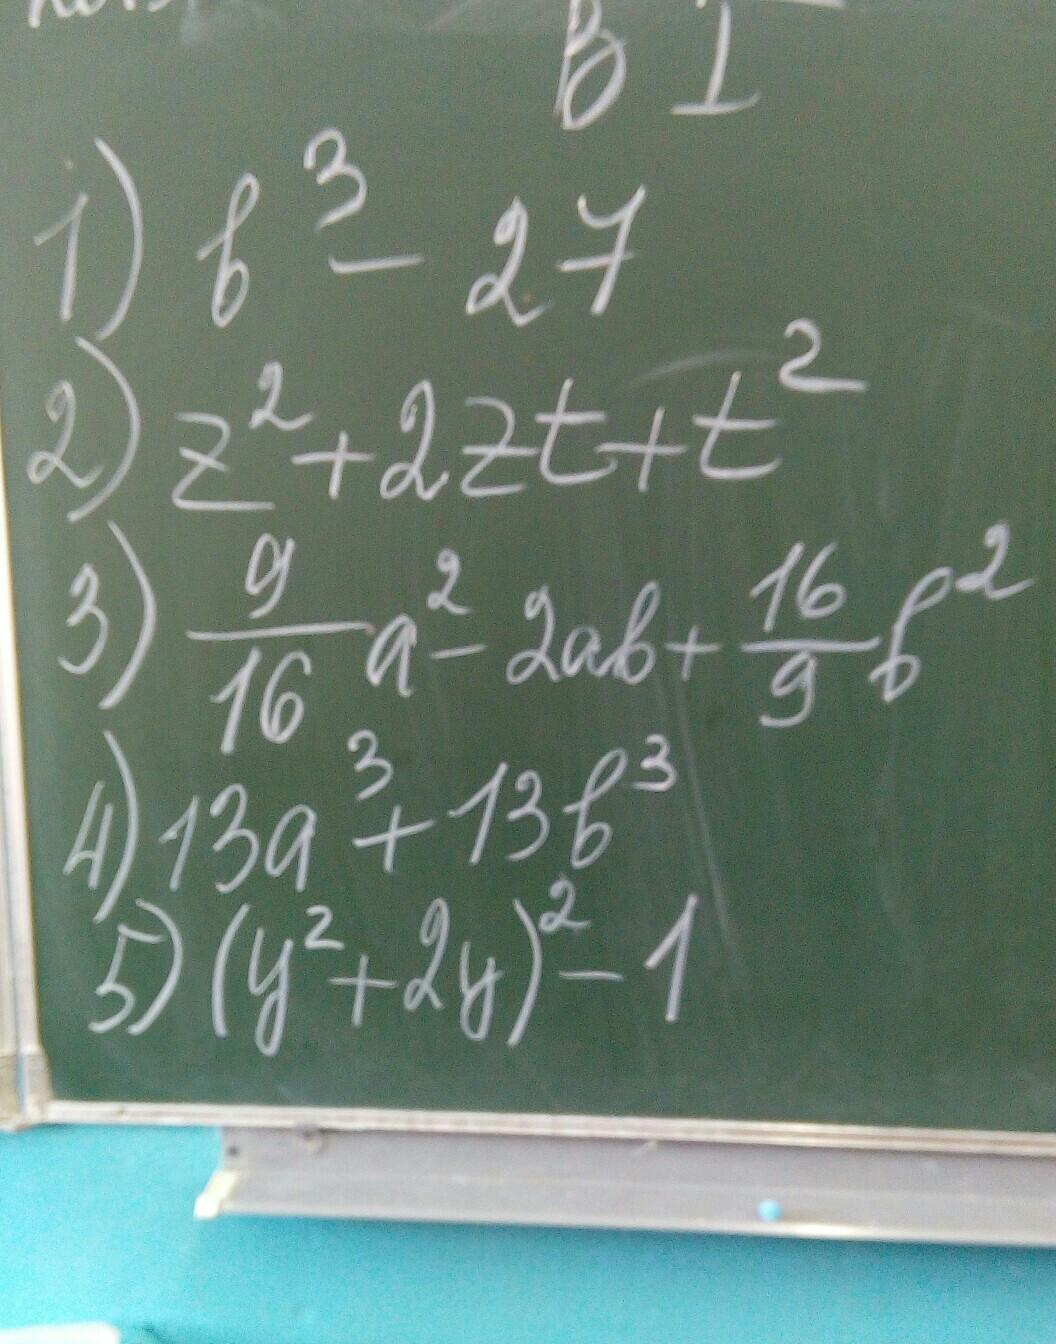 В I
1) b³ - 27
2) z² + 2zt + t²
3) 9/16 a² - 2ab + 16/9 b²
4) 13a³ + 13b³
5) (y² + 2y)² - 1